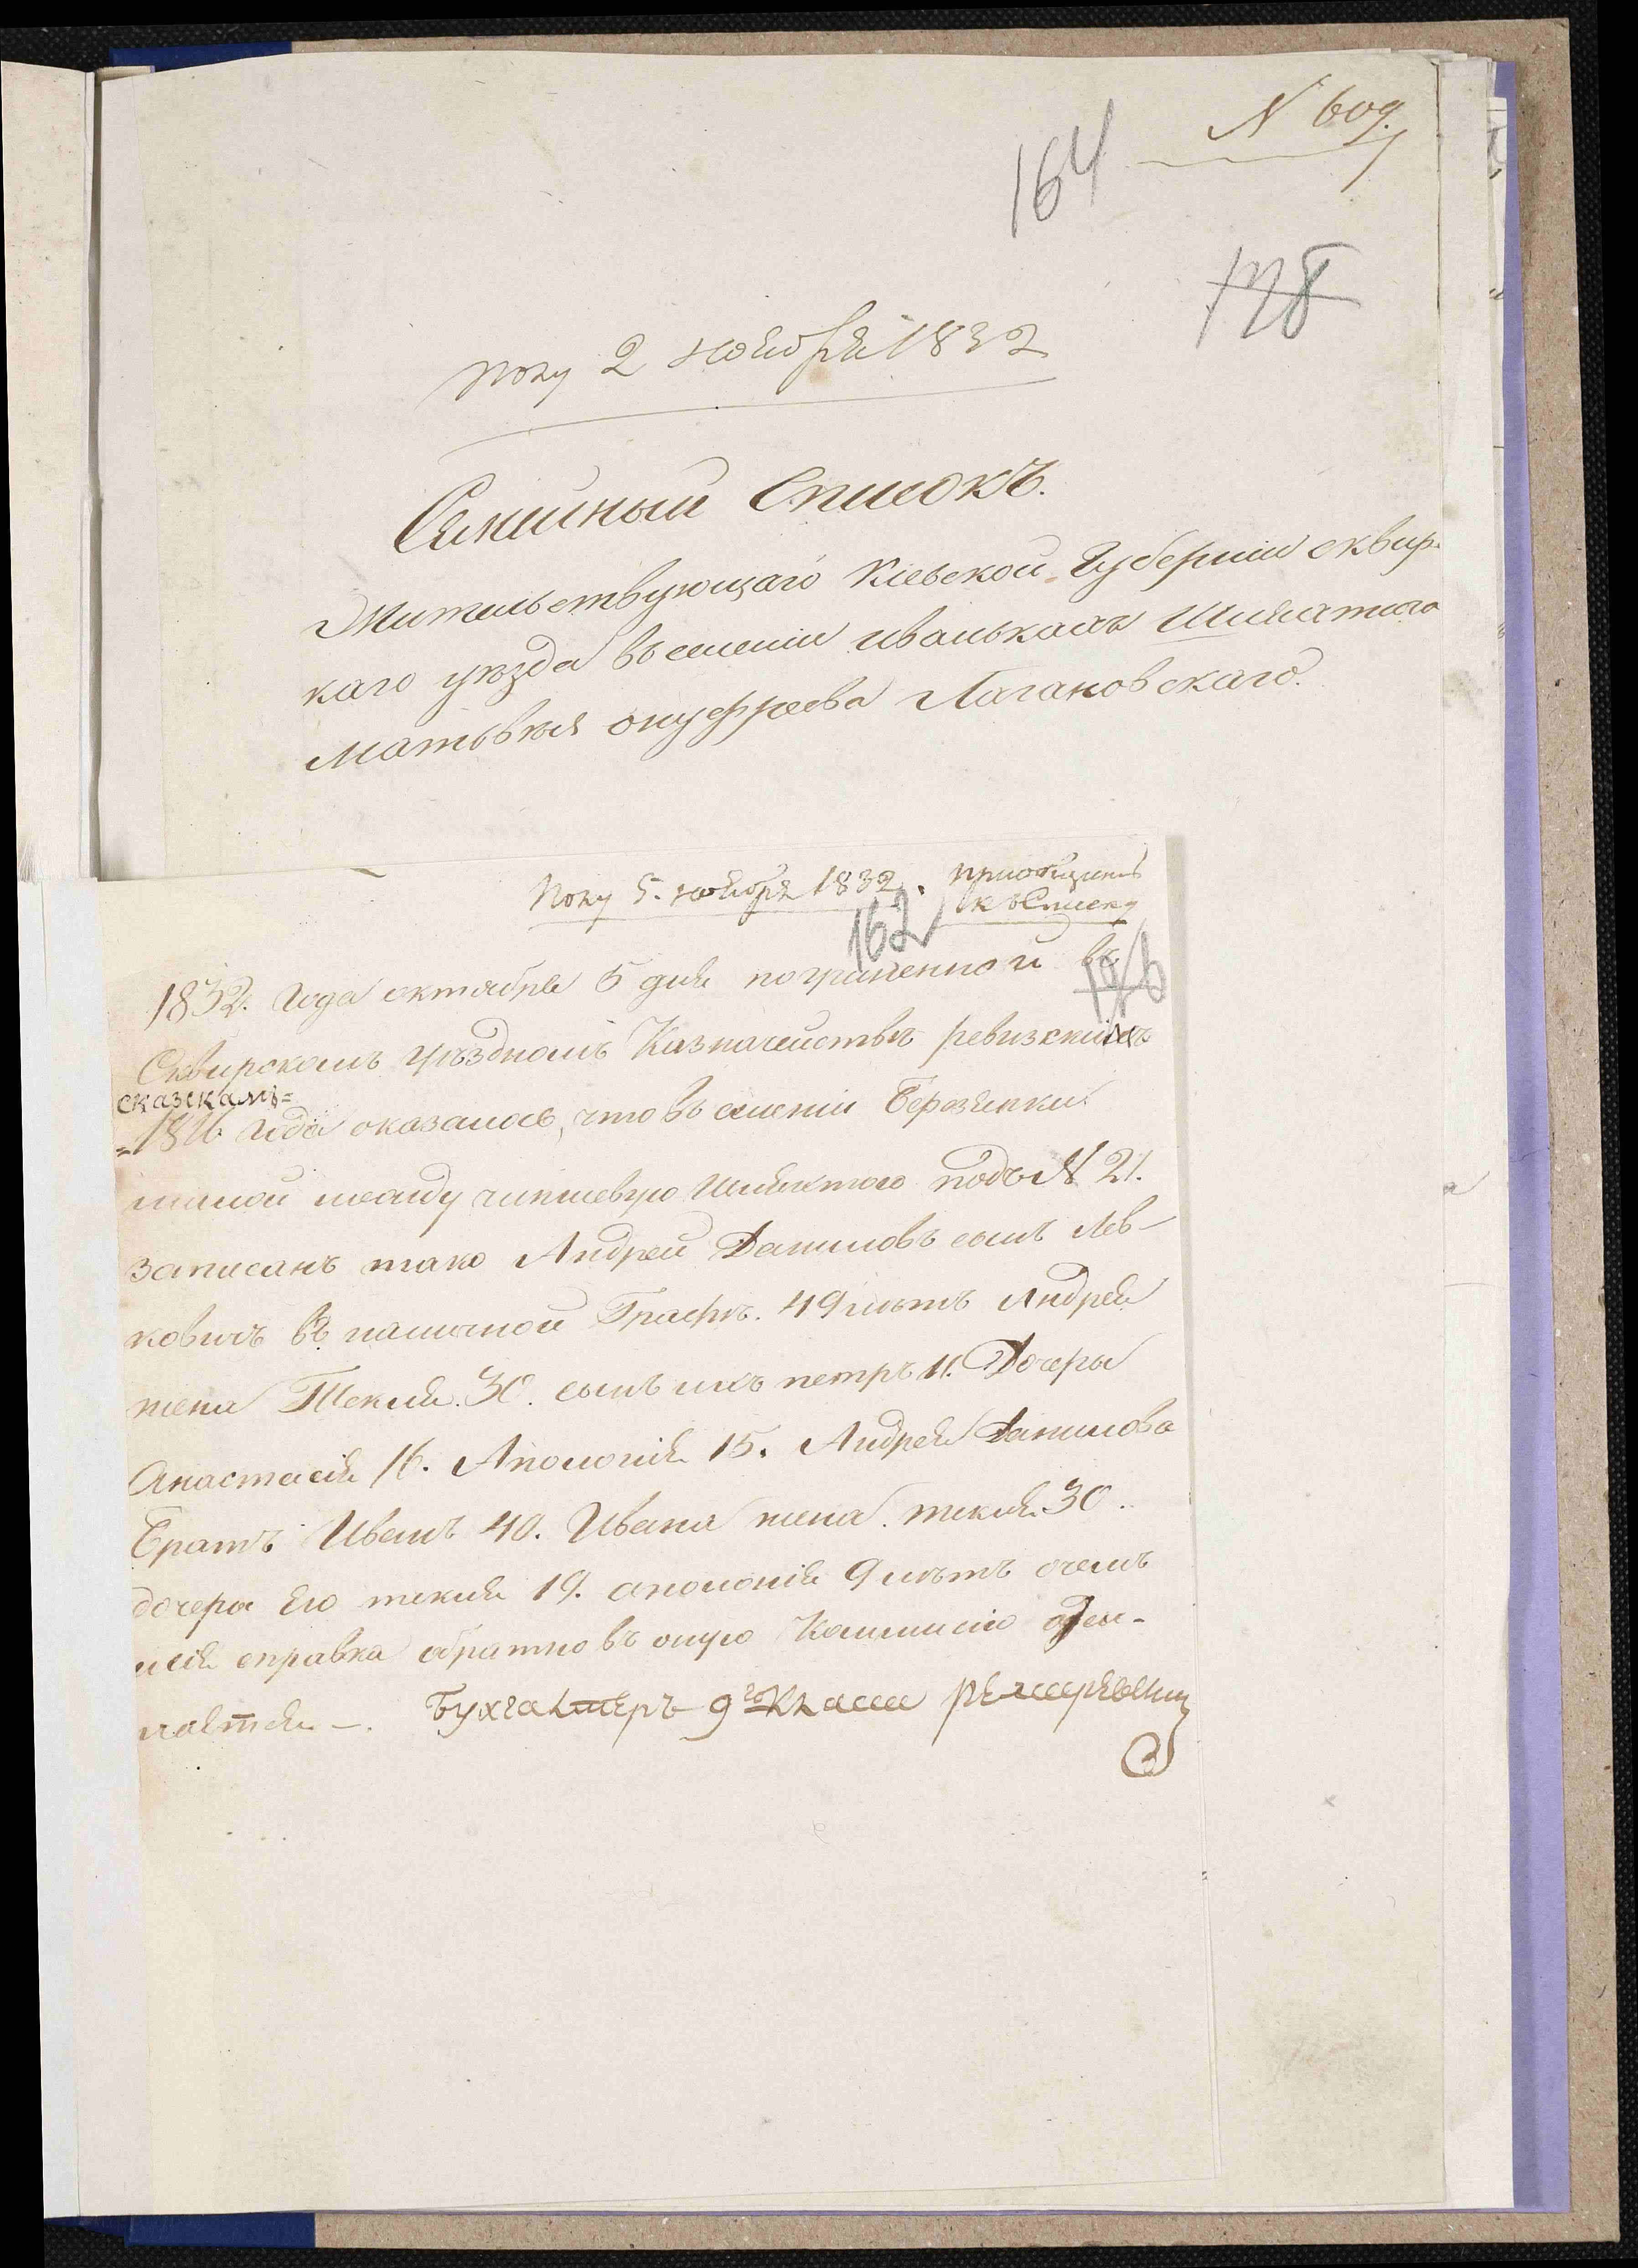 N 609.
164
178
полу 2 ноября 1832
Семейный Списокъ.
Жительствующаго Кіевской Губерніи сквир-
каго уѣзда въ селеніи иванькахъ Шляхтича
матьвѣя онуфреева Лагановскаго.
Полу 5. ноября 1832. приобщить
къ Списку
162
176
1832. Года октября 5 дня по учиненной въ
Сквирскомъ уѣздномъ Казначействѣ ревизскимъ
сказкамъ=
=1816 года оказалось, что въ селеніи Березянки
малой между чиншевую шляхтою подъ N 21.
записанъ тако Андрей Даниловъ сынъ Лев-
ковичъ въ наличной Графѣ. 49 лѣтъ Андрея
жена Текля. 30. сынъ ихъ петръ 11. Дочеры
Анастасія 16. Аполонія 15. Андрея Данилова
братъ Иванъ 40. Ивана жена. текля 30.
дочеры Его текля 19. аполонія 9 лѣтъ очемъ
сія справка обратно въ оную Коммисію
Бухгалтеръ 9го Класса